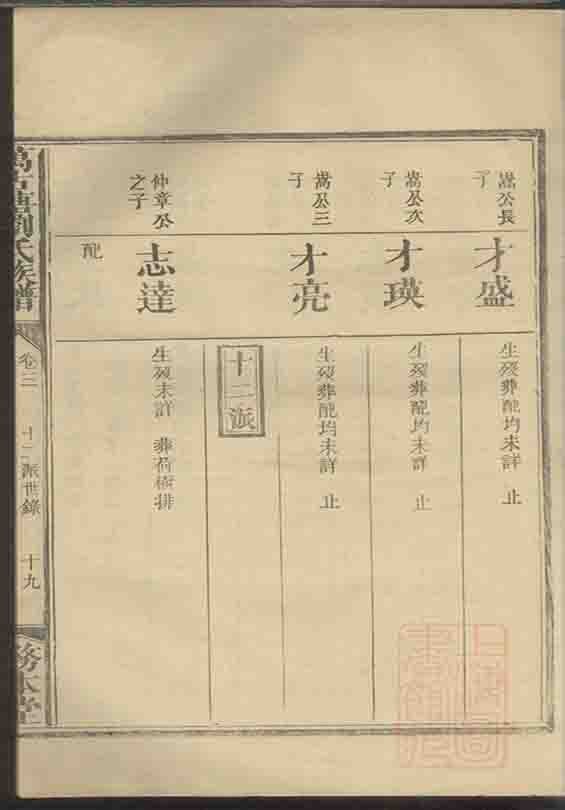 嵩公長子
才盛
生殁葬配均未詳 止
嵩公次子
才瑛
生殁葬配均未詳 止
嵩公三子
才亮
生殁葬配均未詳 止
十二派
仲章公之子
志達
生殁未詳 葬荷樹排
配
劉氏族譜
卷三 十二派世錄 十九
務本堂